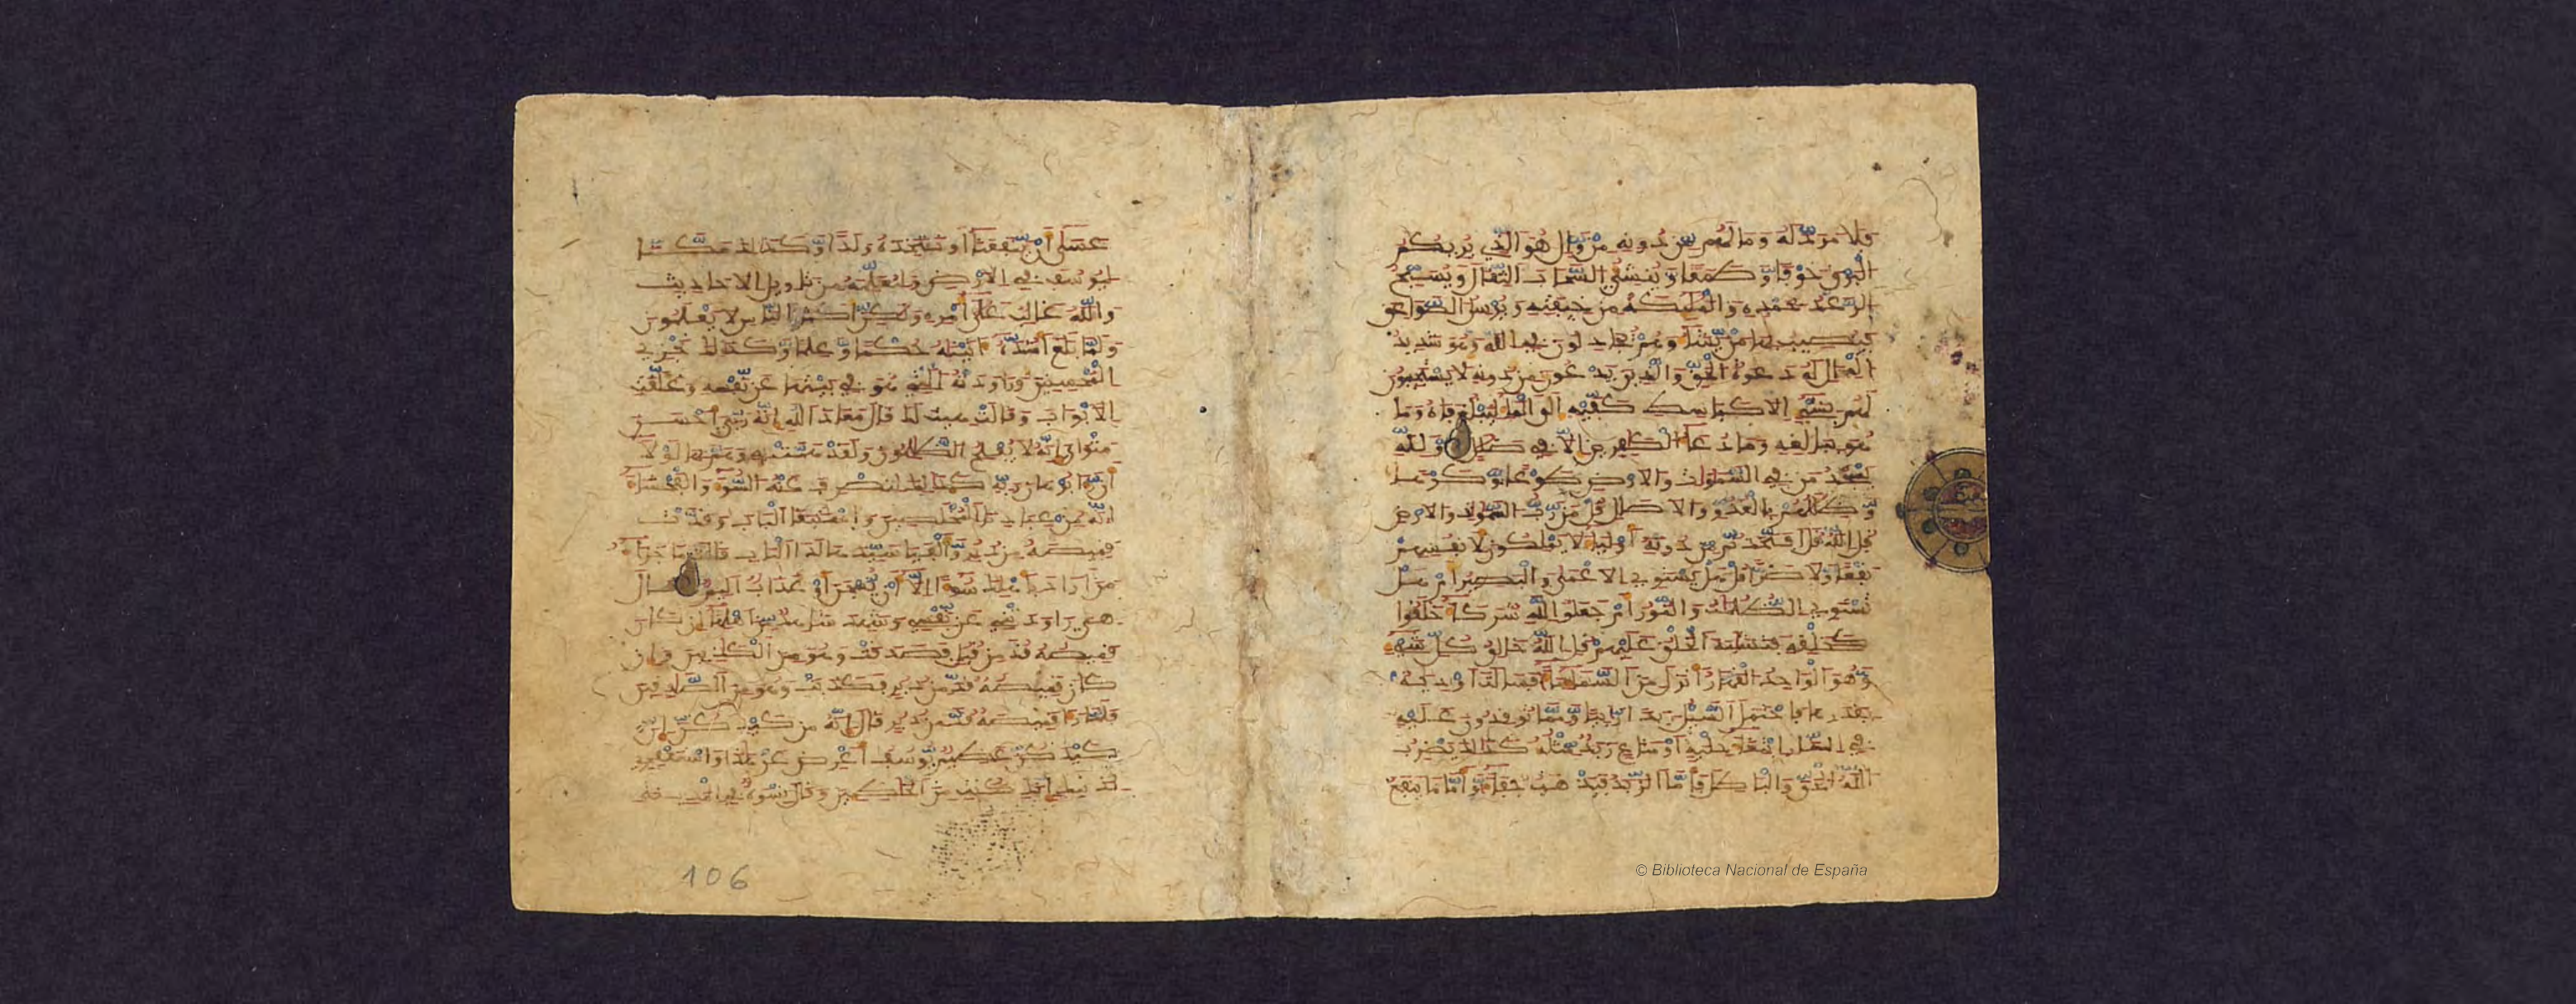 فلا مرد له وما لهم من دونه من وال هو الذي يريكم
البرق خوفا وطمعا وينشئ السحاب الثقال ويسبح
الرعد بحمده والملئكة من خيفته ويرسل الصواعق
فيصيب بها من يشاء وهم يجادلون في الله وهو شديد
المحال له دعوة الحق والذين يدعون من دونه لا يستجيبون
لهم بشيء الا كباسط كفيه الى الماء ليبلغ فاه وما
هو ببالغه وما دعاء الكفرين الا في ضلل ولله
يسجد من في السموات والارض طوعا وكرها
وظللهم بالغدو والاصال قل من رب السموات والارض
قل الله قل افاتخذتم من دونه اولياء لا يملكون لانفسهم
نفعا ولا ضرا قل هل يستوي الاعمى والبصير ام هل
تستوي الظلمات والنور ام جعلوا لله شركاء خلقوا
كخلقه فتشبه الخلق عليهم قل الله خالق كل شيء
وهو الواحد القهار انزل من السماء ماء فسالت اودية
بقدرها فاحتمل السيل زبدا رابيا ومما توقدون عليه
في النار ابتغاء حلية او متاع زبد مثله كذلك يضرب
الله الحق والباطل فاما الزبد فيذهب جفاء واما ما ينفع
عسى ان ينفعنا او نتخذه ولدا وكذلك مكنا
ليوسف في الارض ولنعلمه من تاويل الاحاديث
والله غالب على امره ولكن اكثر الناس لا يعلمون
ولما بلغ اشده اتينه حكما وعلما وكذلك نجزي
المحسنين وراودته التي هو في بيتها عن نفسه وغلقت
الابواب وقالت هيت لك قال معاذ الله انه ربي احسن
مثواي انه لا يفلح الظالمون ولقد همت به وهم بها لولا
ان رءا برهان ربه كذلك لنصرف عنه السوء والفحشاء
انه من عبادنا المخلصين واستبقا الباب وقدت
قميصه من دبر والفيا سيدها لدا الباب قالت ما جزاء
من اراد باهلك سوءا الا ان يسجن او عذاب اليم قال
هي راودتني عن نفسي وشهد شاهد من اهلها ان كان
قميصه قد من قبل فصدقت وهو من الكاذبين وان
كان قميصه قد من دبر فكذبت وهو من الصادقين
فلما رءا قميصه قد من دبر قال انه من كيدكن ان
كيدكن عظيم يوسف اعرض عن هذا واستغفري
لذنبك انك كنت من الخاطين وقال نسوة في المدينة
106
© Biblioteca Nacional de España